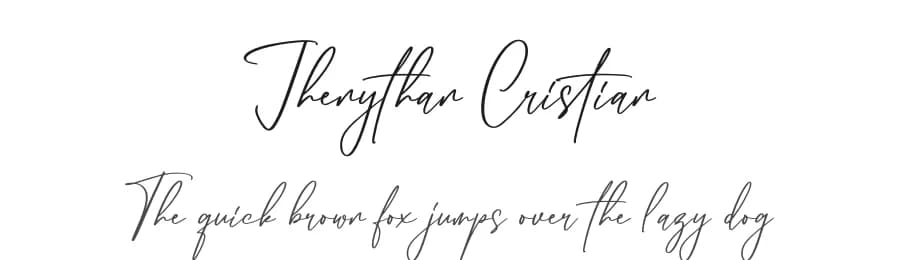 Jhenythan Cristian
The quick brown fox jumps over the lazy dog